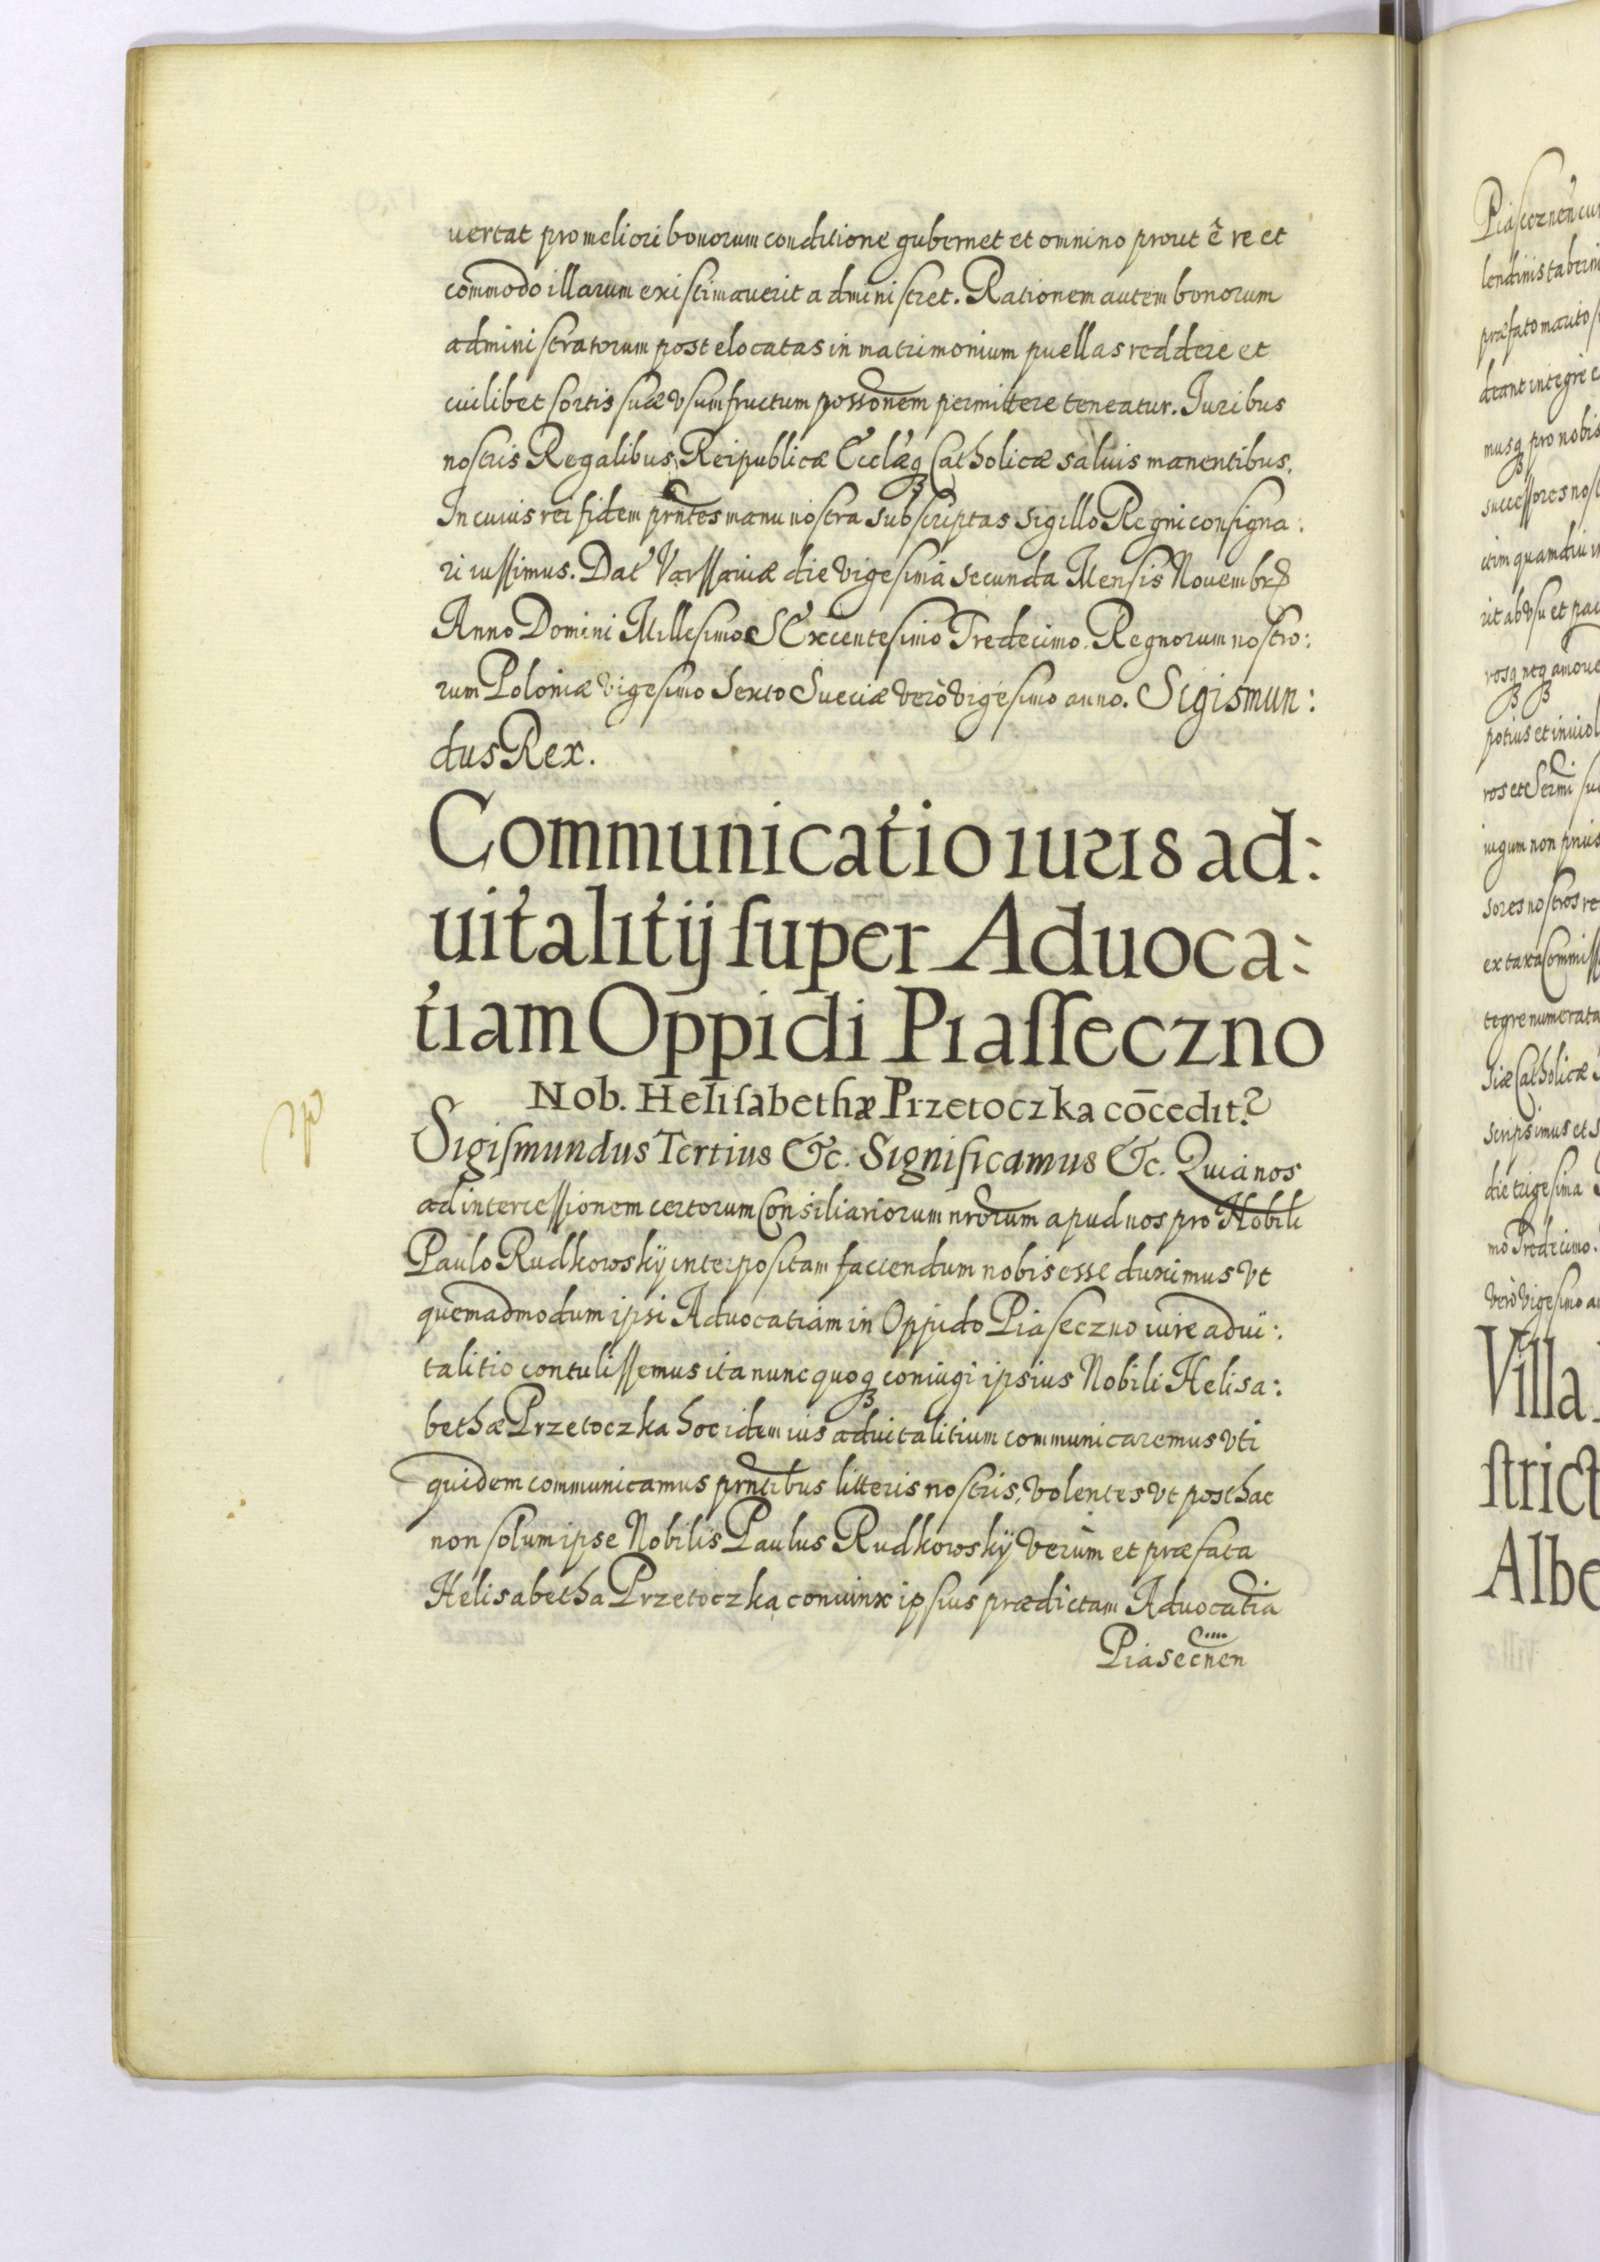 uertat pro meliori bonorum conditione gubernet et omnino prout ê re et
commodo illarum existimauerit administret. Rationem autem bonorum
administratorum post elocatas in matrimonium puellas reddere et
cuilibet sortis suæ vsumfructum possonem permittere teneatur. Iuribus
nostris Regalibus, Reipublicæ Ecclæq₃ Catholicæ saluis manentibus.
In cuius rei fidem prntes manu nostra subscriptas sigillo Regni consigna:
ri iussimus. Dat Varssauiæ die vigesima secunda Mensis Nouembr
Anno Domini Millesimo SExcentesimo Tredecimo. Regnorum nostro:
rum Poloniæ vigesimo sexto Sueciæ verò vigesimo anno. Sigismun:
dus Rex.
Communicatio iuris ad:
uitalitij super Aduoca:
tiam Oppidi Piasseczno
Nob. Helisabethæ Przetoczka cōcedit?
Sigismundus Tertius &c. Significamus &c. Quia nos
ad intercessionem certorum Consiliariorum nrorum apud nos pro Nobili
Paulo Rudkowskÿ interpositam faciendum nobis esse duximus vt
quemadmodum ipsi Aduocatiam in Oppido Piaseczno iure adui:
talitio contulissemus ita nunc quoq₃ coniugi ipsius Nobili Helisa:
bethæ Przetoczka hoc idem ius aduitalitium communicaremus vti
quidem communicamus prntibus litteris nostris, volentes vt posthac
non solum ipse Nobilis Paulus Rudkowskÿ verùm et præfata
Helisabetha Przetoczka coniunx ipsius prædictam Aduocatia
Piasecnen
Piasecznen cu
lendinis taberni
præfato marito s
deant integrè e
musq₃ pro nobis
successores nost
etim quamdiu
rit ab vsu et pac
rosq₃ neq₃ amoue
potius et inuiol
ros et Sermi su
iugum non prius
sores nostros re
ex taxa Commiss
tegre numerata
siæ Catholicæ
scripsimus et s
die trigesima
mo Tredecimo.
verò vigesimo a
Villa
strict
Albe